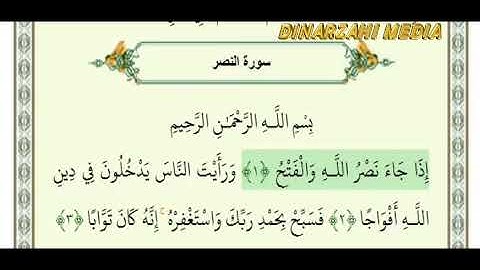 DINARZAHI MEDIA
سورة النصر
بِسْمِ اللَّـهِ الرَّحْمَـٰنِ الرَّحِيمِ
إِذَا جَاءَ نَصْرُ اللَّـهِ وَالْفَتْحُ ﴿١﴾ وَرَأَيْتَ النَّاسَ يَدْخُلُونَ فِي دِينِ
اللَّـهِ أَفْوَاجًا ﴿٢﴾ فَسَبِّحْ بِحَمْدِ رَبِّكَ وَاسْتَغْفِرْهُ ۚ إِنَّهُ كَانَ تَوَّابًا ﴿٣﴾